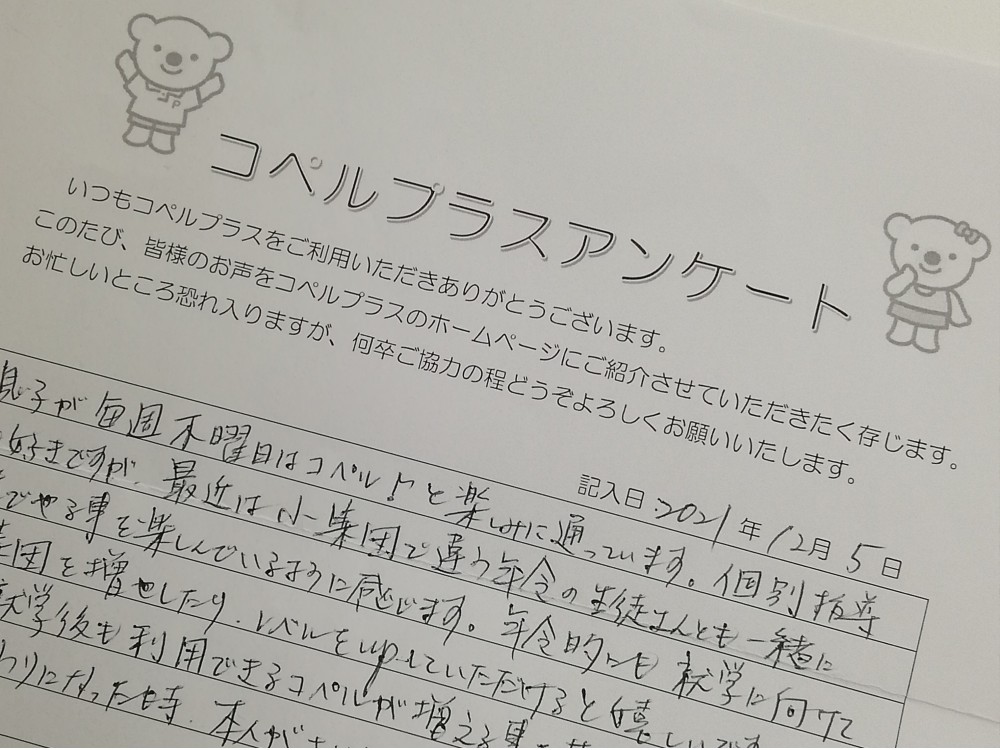 コペルプラスアンケート
いつもコペルプラスをご利用いただきありがとうございます。
このたび、皆様のお声をコペルプラスのホームページにご紹介させていただきたく存じます。
お忙しいところ恐れ入りますが、何卒ご協力の程どうぞよろしくお願いいたします。
記入日:2021年12月5日
息子が毎週木曜日はコペル♪と楽しみに通っています。個別指導
好きですが、最近は小集団で違う年令の生徒さんとも一緒に
でやる事を楽しんでいるように感じます。年令的にも就学に向けて
集団を増やしたり、レベルをupしていただけると嬉しいです
就学後も利用できるコペルが増える事を
わりになった時、本人が